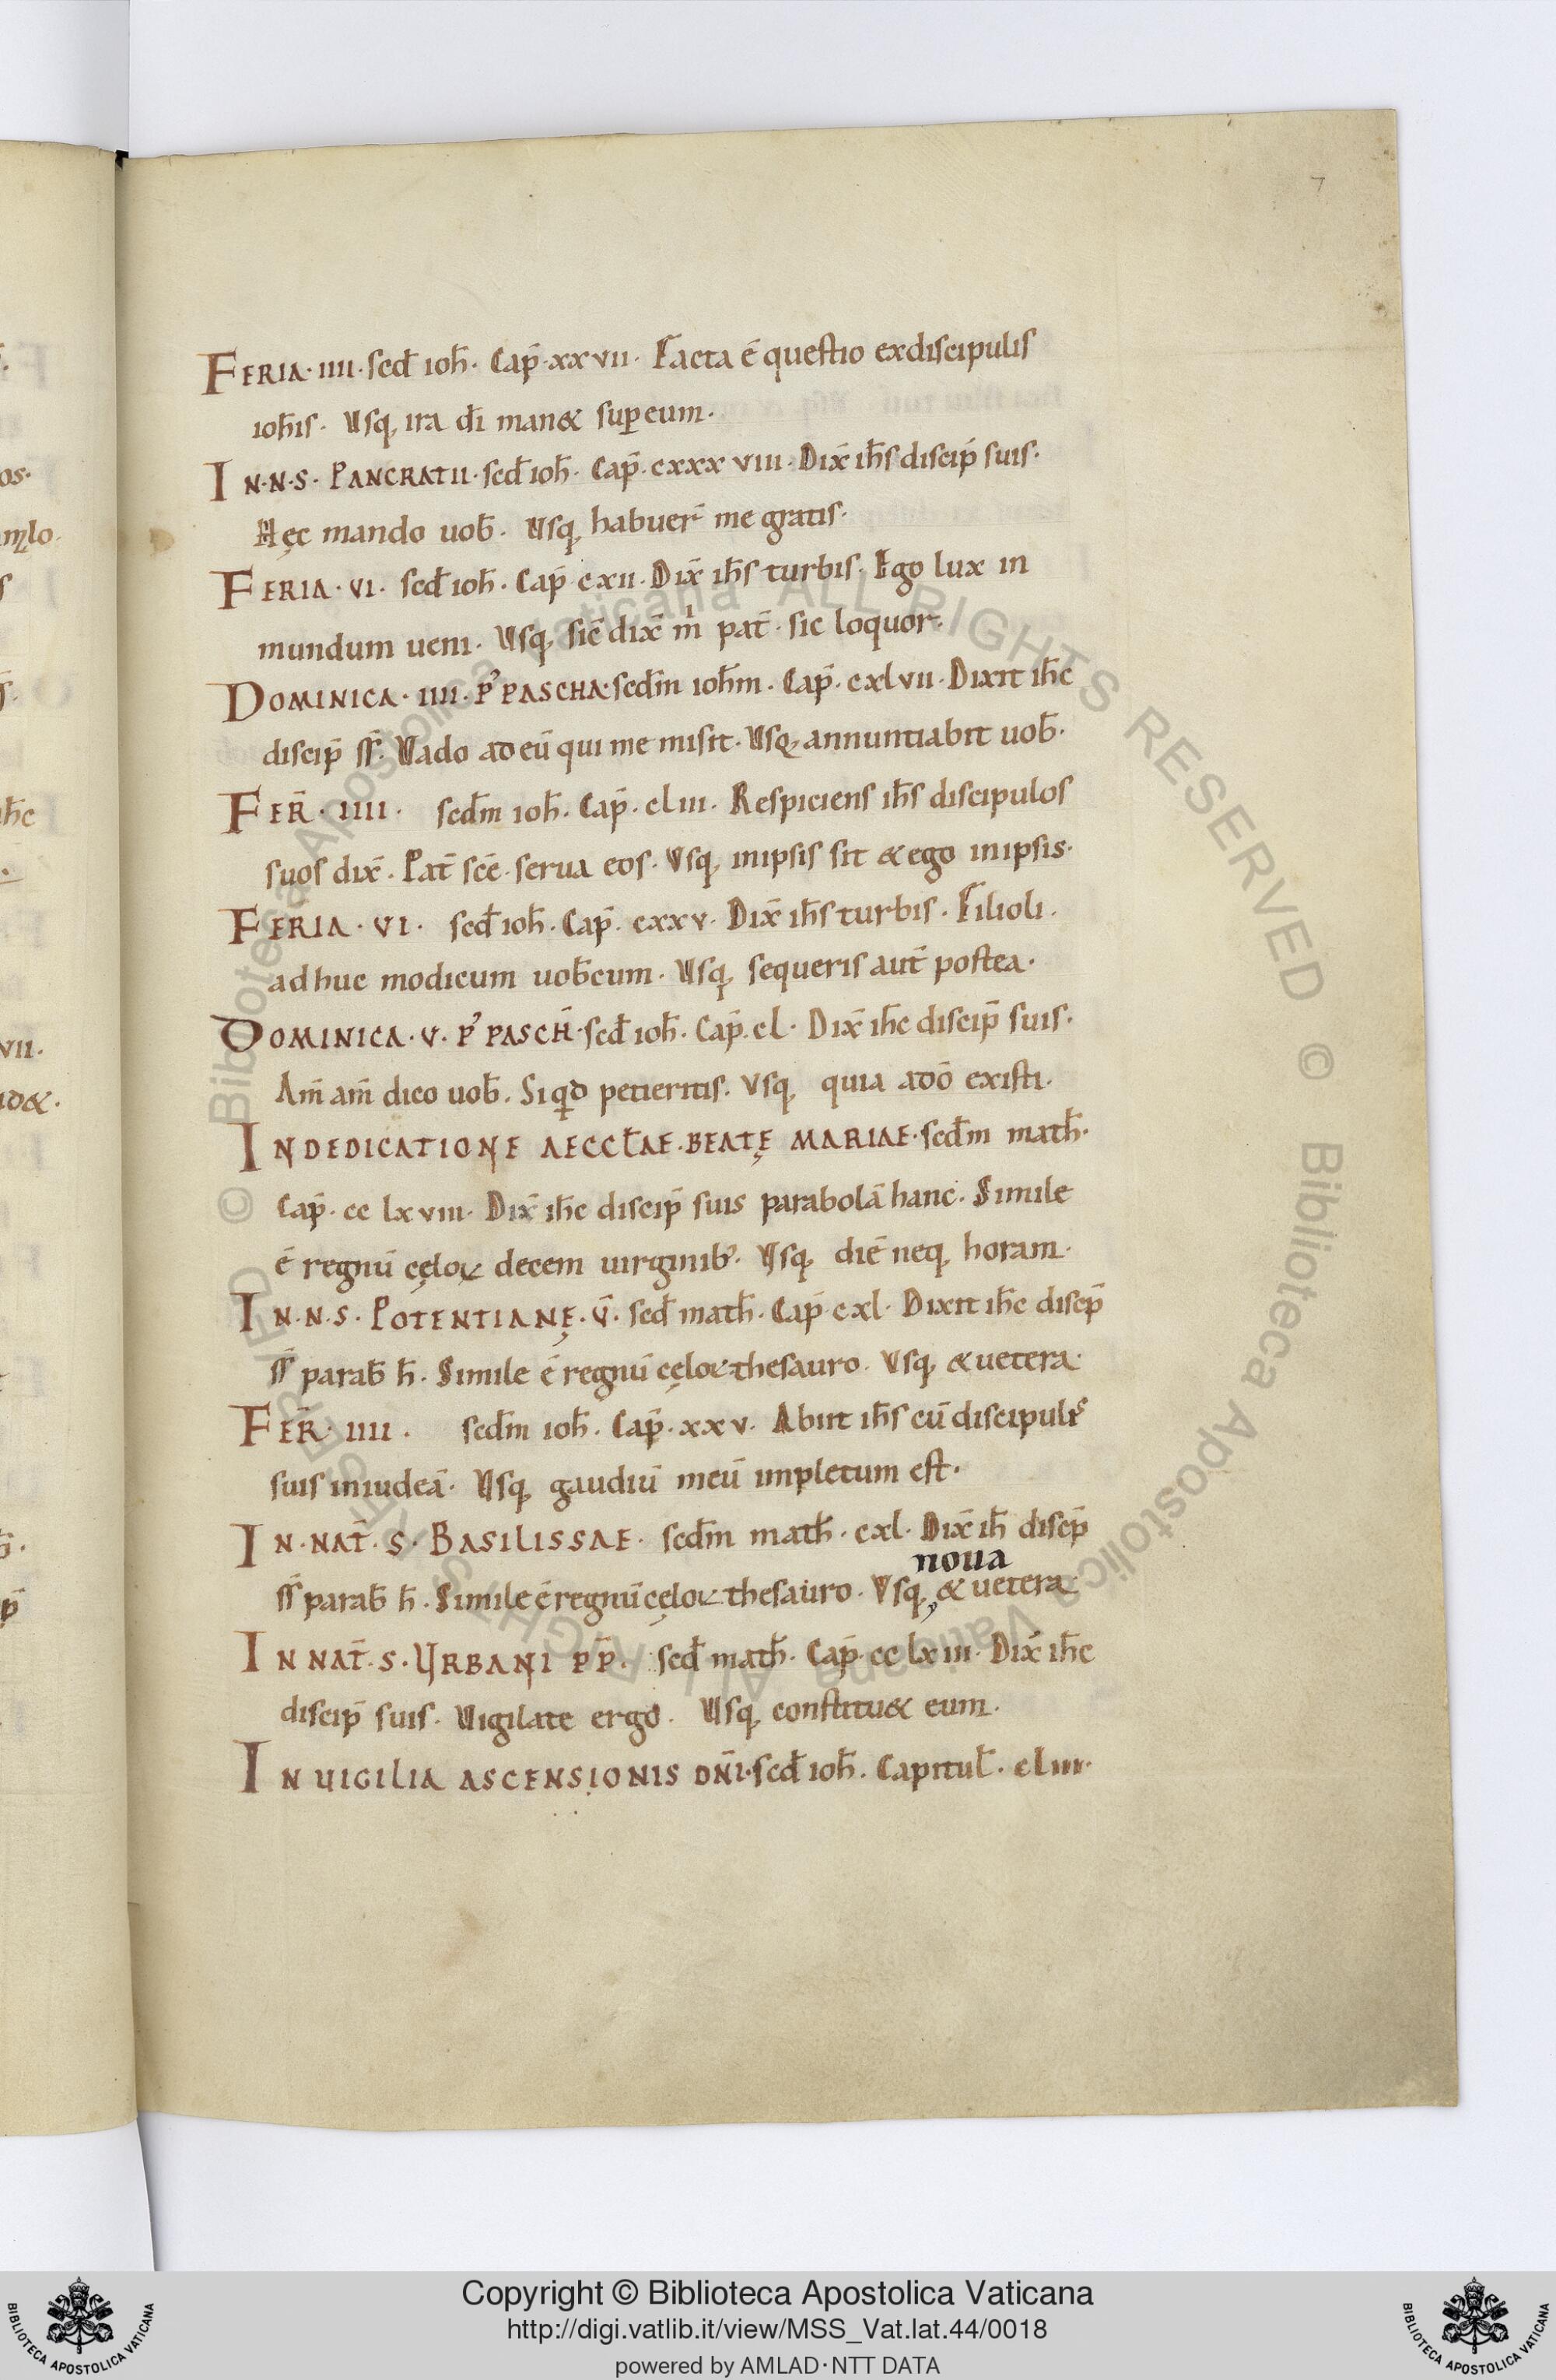 7
FERIA · IIII · scd̄ ioh̄ · Cap̄ · xxvii · Facta ē questio exdiscipulis
ioh̄is · Usq; ira d̄i man& sup̄ eum ·
IN · N · S · PANCRATII · scd̄ ioh̄ · Cap̄ · cxxxviii · Dix̄ ih̄s discip̄ suis ·
Hęc mando uob̄ · Usq; habuer̄ me gratis ·
FERIA · VI · scd̄ ioh̄ · Cap̄ cxii · Dix̄ ih̄s turbis · Ego lux in
mundum ueni · Usq; sic̄ dix̄ m̄ pat̄ · sic loquor ·
DOMINICA · IIII · P' PASCHA · scd̄m ioh̄m · Cap̄ · cxlvii · Dixit ih̄c
discip̄ ss̄ · Uado ad eū qui me misit · Usq; annuntiabit uob̄ ·
FER̄ · IIII · scd̄m ioh̄ · Cap̄ · cliii · Respiciens ih̄s discipulos
suos dix̄ · Pat̄ sc̄e · serua eos · Usq; inipsis sit & ego inipsis ·
FERIA · VI · scd̄ ioh̄ · Cap̄ · cxxv · Dix̄ ih̄s turbis · Filioli ·
adhuc modicum uob̄cum · Usq; sequeris aut̄ postea ·
DOMINICA · V · P' PASCH̄ · scd̄ ioh̄ · Cap̄ · cl · Dix̄ ih̄c discip̄ suis ·
Am̄ am̄ dico uob̄ · Siqd petieritis · Usq; quia adō existi ·
INDEDICATIONE AECCL̄AE · BEATĘ MARIAE · scd̄m math̄ ·
Cap̄ · cclxviii · Dix̄ ih̄c discip̄ suis parabolā hanc · Simile
ē regnū cęloꝝ decem uirginib; · Usq; diē neq; horam ·
IN · N · S · POTENTIANĘ · V̄ · scd̄ math̄ · Cap̄ · cxl · Dixit ih̄c discp̄
ss̄ parab̄ h̄ · Simile ē regnū cęloꝝ thesauro · Usq; & uetera ·
FER̄ · IIII · scd̄m ioh̄ · Cap̄ · xxv · Abiit ih̄s cū discipulis
suis iniudeā · Usq; gaudiū meū impletum est ·
IN · NAT̄ · S · BASILISSAE · scd̄m math̄ · cxl · Dix̄ ih̄ discp̄
noua
ss̄ parab̄ h̄ · Simile ē regnū cęloꝝ thesauro · Usq; & uetera
IN NAT̄ · S · URBANI P̄P̄ · scd̄ math̄ · Cap̄ · cclxiii · Dix̄ ih̄c
discip̄ suis · Uigilate ergo · Usq; constitu& eum ·
IN UIGILIA ASCENSIONIS DN̄I · scd̄ ioh̄ · Capitul̄ · cliii ·
Copyright © Biblioteca Apostolica Vaticana
http://digi.vatlib.it/view/MSS_Vat.lat.44/0018
powered by AMLAD · NTT DATA